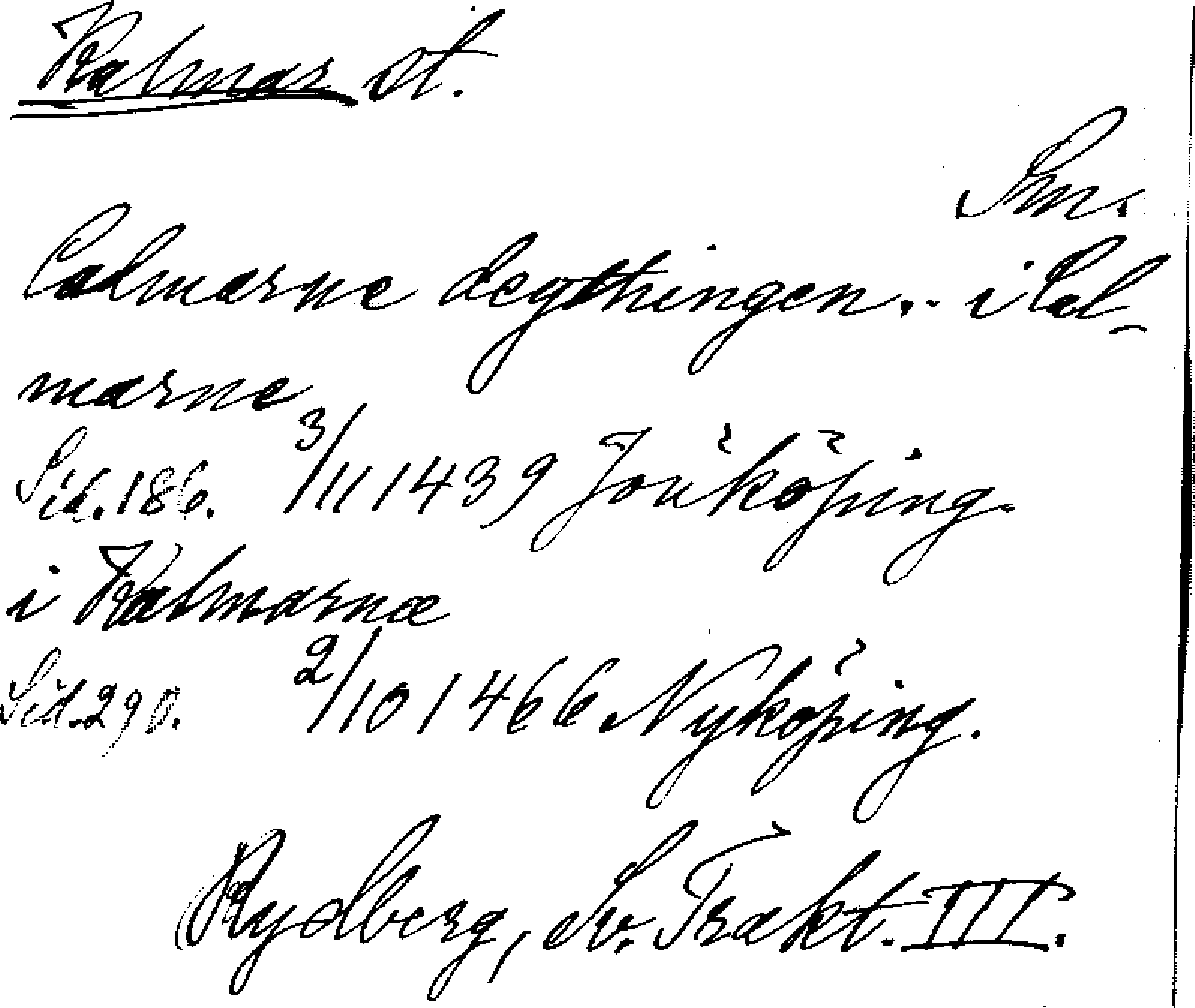 Kalmar st.
Sm.
Calmarne degthingen.. i Cal-
marne
Sid. 186. 3/11 1439 Jonköping.
i Kalmarnæ
Sid. 290. 2/10 1466 Nyköping.
Rydberg, Sv. Trakt. III.